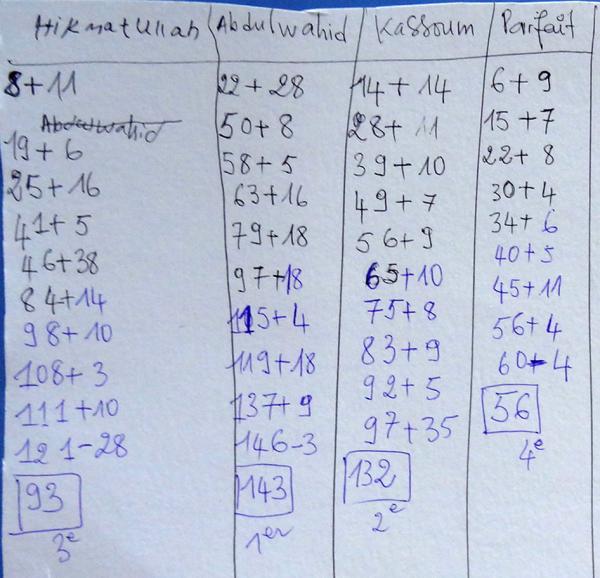 Hikmatullah
8+11
Abdulwahid
19+6
25+16
41+5
46+38
84+14
98+10
108+3
111+10
121-28
93
3e
Abdulwahid
22+28
50+8
58+5
63+16
79+18
97+18
115+4
119+18
137+9
146-3
143
1er
Kassoum
14+14
28+11
39+10
49+7
56+9
65+10
75+8
83+9
92+5
97+35
132
2e
Parfait
6+9
15+7
22+8
30+4
34+6
40+5
45+11
56+4
60-4
56
4e